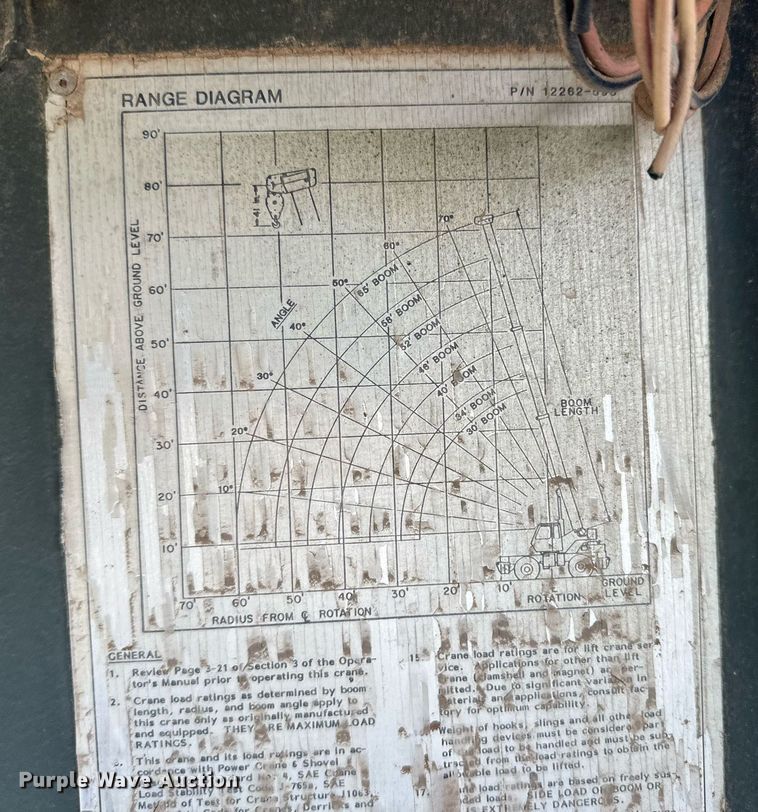 RANGE DIAGRAM
P/N 12262-
90'
80'
70'
60'
50'
40'
30'
20'
10'
DISTANCE ABOVE GROUND LEVEL
41 in.
ANGLE
70°
60°
50°
40°
30°
20°
10°
65' BOOM
58' BOOM
52' BOOM
46' BOOM
40' BOOM
34' BOOM
30' BOOM
BOOM
LENGTH
70'
60'
50'
40'
30'
20'
10'
RADIUS FROM ℄ ROTATION
℄
ROTATION
GROUND
LEVEL
GENERAL
1. Review Page 3-21 of Section 3 of the Opera-
tor's Manual prior to operating this crane.
2. Crane load ratings as determined by boom
length, radius, and boom angle apply to
this crane only as originally manufactured
and equipped. THEY ARE MAXIMUM LOAD
RATINGS.
This crane and its load ratings are in ac-
cordance with Power Crane & Shovel
4, SAE Crane
Load Stability Test Code J-765a, SAE
Method of Test for Crane Structure J1063,
Derricks and
15. Crane load ratings are for lift crane ser-
vice. Applications for other than lift
crane (clamshell and magnet) are per-
mitted. Due to significant variation in
materials and applications, consult fac-
tory for optimum capability.
Weight of hooks, slings and all other load
handling devices must be considered part
of load to be handled and must be sub-
tracted from load ratings to obtain the
allowable load to be lifted.
17. load ratings are based on freely sus-
pended loads. SIDE LOAD OF BOOM OR
EXTREMELY DANGEROUS.
Purple Wave Auction